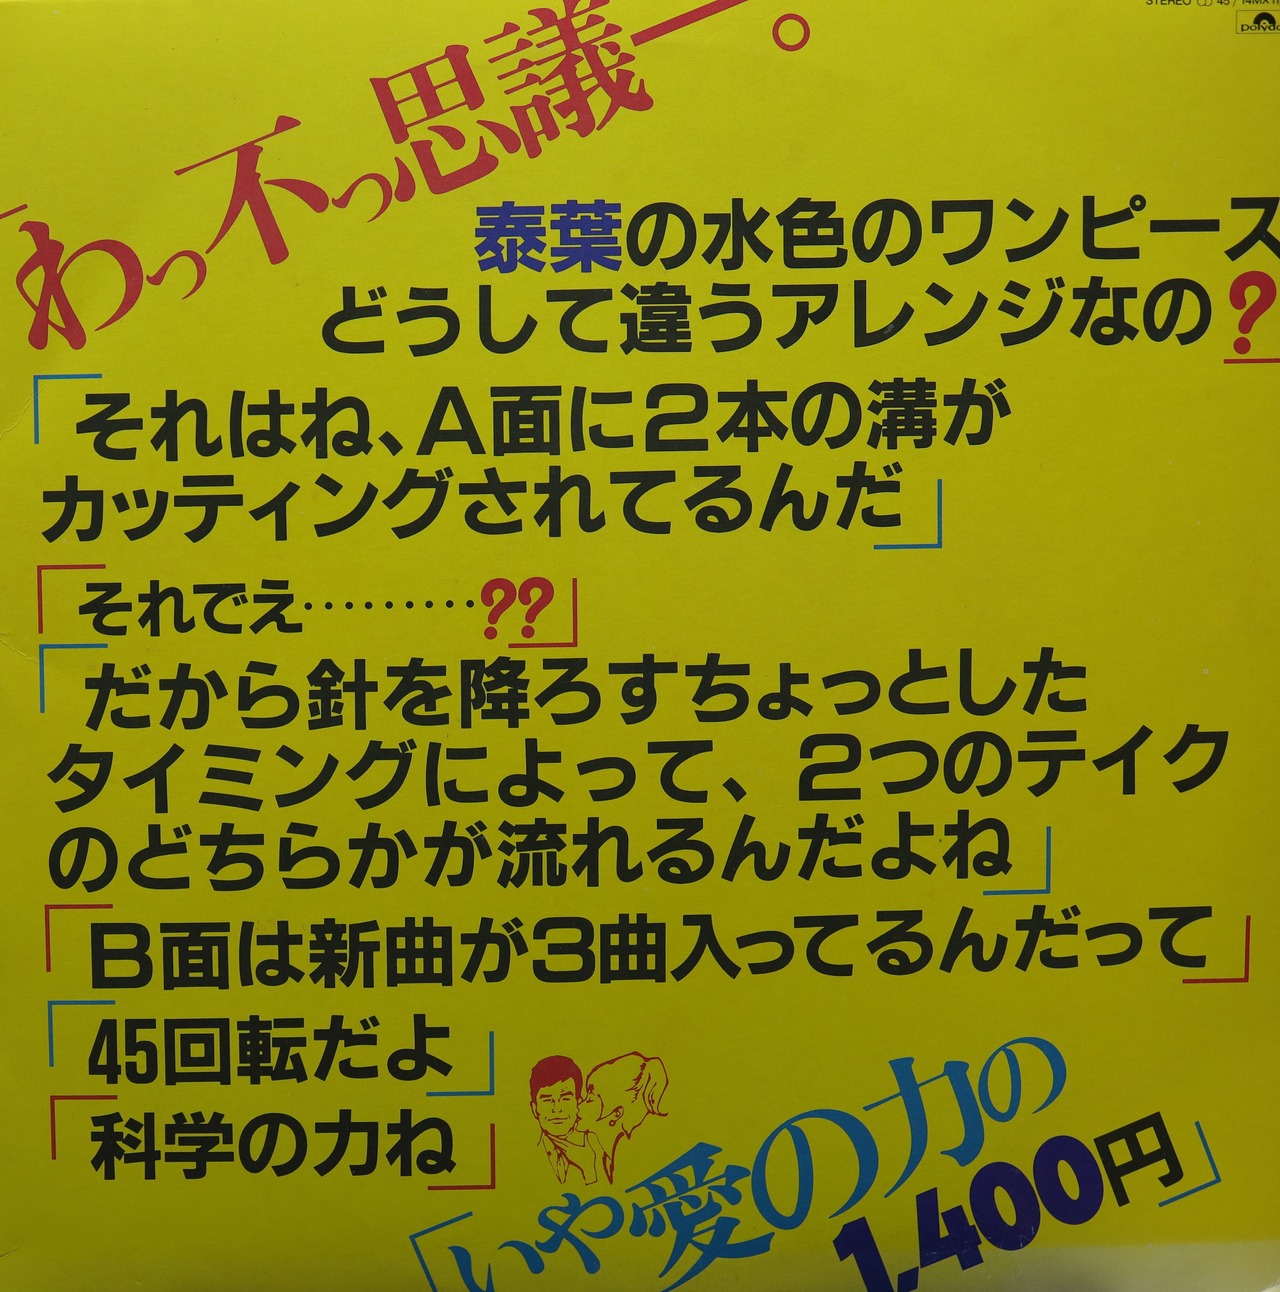 STEREO 45 / 14MX11
Polydo
「わっ不っ思議ー。
泰葉の水色のワンピース
どうして違うアレンジなの?」
「それはね、A面に2本の溝が
カッティングされてるんだ」
「それでえ………??」
「だから針を降ろすちょっとした
タイミングによって、2つのテイク
のどちらかが流れるんだよね」
「B面は新曲が3曲入ってるんだって」
「45回転だよ」
「科学の力ね」
「いや愛の力の
1,400円」